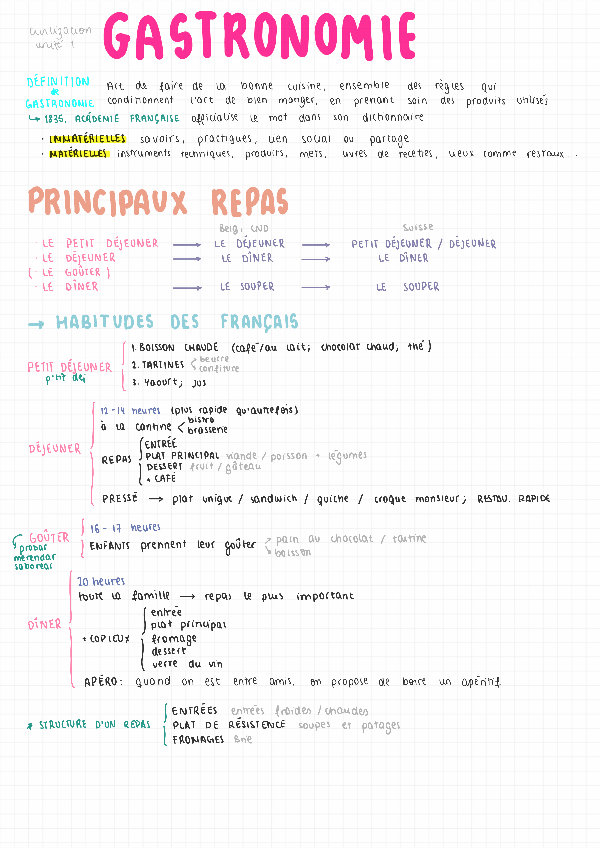 GASTRONOMIE
unité 1
DÉFINITION de GASTRONOMIE
Art de faire de la bonne cuisine, ensemble des règles qui
conditionnent l'art de bien manger, en prenant soin des produits utilisés
↳ 1835, ACADÉMIE FRANÇAISE officialise le mot dans son dictionnaire
· IMMATÉRIELLES savoirs, practiques, lien social ou partage
· MATÉRIELLES instruments techniques, produits, mets, livres de receties, lieux comme restaux.
PRINCIPAUX REPAS
Belg, CND Suisse
· LE PETIT DÉJEUNER → LE DÉJEUNER → PETIT DÉJEUNER / DÉJEUNER
· LE DÉJEUNER → LE DÎNER → LE DÎNER
( LE GOÛTER )
· LE DÎNER → LE SOUPER → LE SOUPER
→ HABITUDES DES FRANÇAIS
PETIT DÉJEUNER
p'tit dej
1. BOISSON CHAUDE (café/au lait; chocolat chaud, thé)
2. TARTINES beurre
confiture
3. Yaourt; jus
DÉJEUNER
12-14 heures (plus rapide qu'autrefois)
à la cantine bistro
brasserie
REPAS
ENTRÉE
PLAT PRINCIPAL viande / poisson + légumes
DESSERT fruit / gâteau
+ CAFÉ
PRESSÉ → plat unique / sandwich / quiche / croque monsieur; RESTAU. RAPIDE
GOÛTER
probar
merendar
saborear
16-17 heures
ENFANTS prennent leur goûter pain au chocolat / tartine
boisson
DÎNER
20 heures
toute la famille → repas le plus important
+ COPIEUX
entrée
plat principal
fromage
dessert
verre du vin
APÉRO: quand on est entre amis, on propose de boire un apéritif
* STRUCTURE D'UN REPAS
ENTRÉES entrées froides / chaudes
PLAT DE RÉSISTENCE soupes et potages
FROMAGES